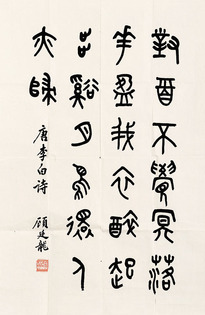 對酉不覺冥落
華盈我衣醉起
步谿月鳥還人
亦稀
唐李白詩
顧廷龍